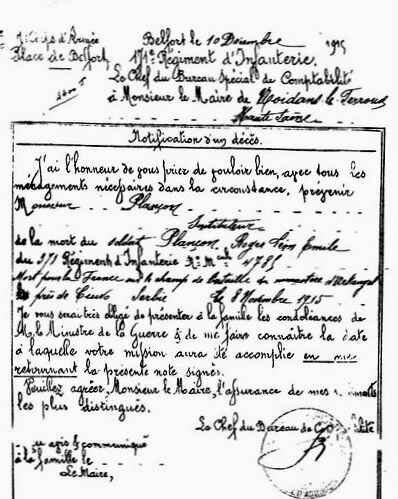 d'Armée Belfort le 10 Décembre 1915
Place de Belfort 171e Régiment d'Infanterie.
Le Chef du Bureau Spécial de Comptabilité
à Monsieur le Maire de Noidans le Ferroux
Haute Saône
Notification d'un décès.
J'ai l'honneur de vous prier de vouloir bien, avec tous les
ménagements nécessaires dans la circonstance, prévenir
Monsieur Plançon
Instituteur
de la mort du soldat Plançon, Léon Emile
du 371 Régiment d'Infanterie No Mle 4785
Mort pour la France sur le champ de bataille au monastère d'Arkangel
près de Serbie le 8 Novembre 1915
Je vous serai très obligé de présenter à la famille les condoléances de
Mr le Ministre de la Guerre & de me faire connaître la date
à laquelle votre mission aura été accomplie en me
retournant la présente note signée.
Veuillez agréer, Monsieur le Maire, l'assurance de mes
les plus distingués.
Le Chef du Bureau de
avis & communiqué
à la famille le
Le Maire,